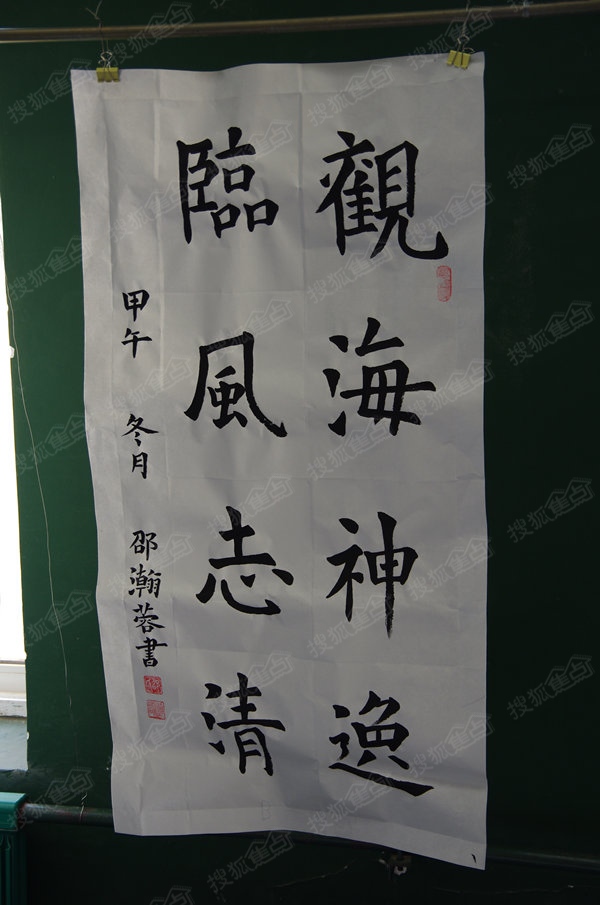 觀海神逸
臨風志清
甲午 冬月 邵瀚蓉書
搜狐焦点